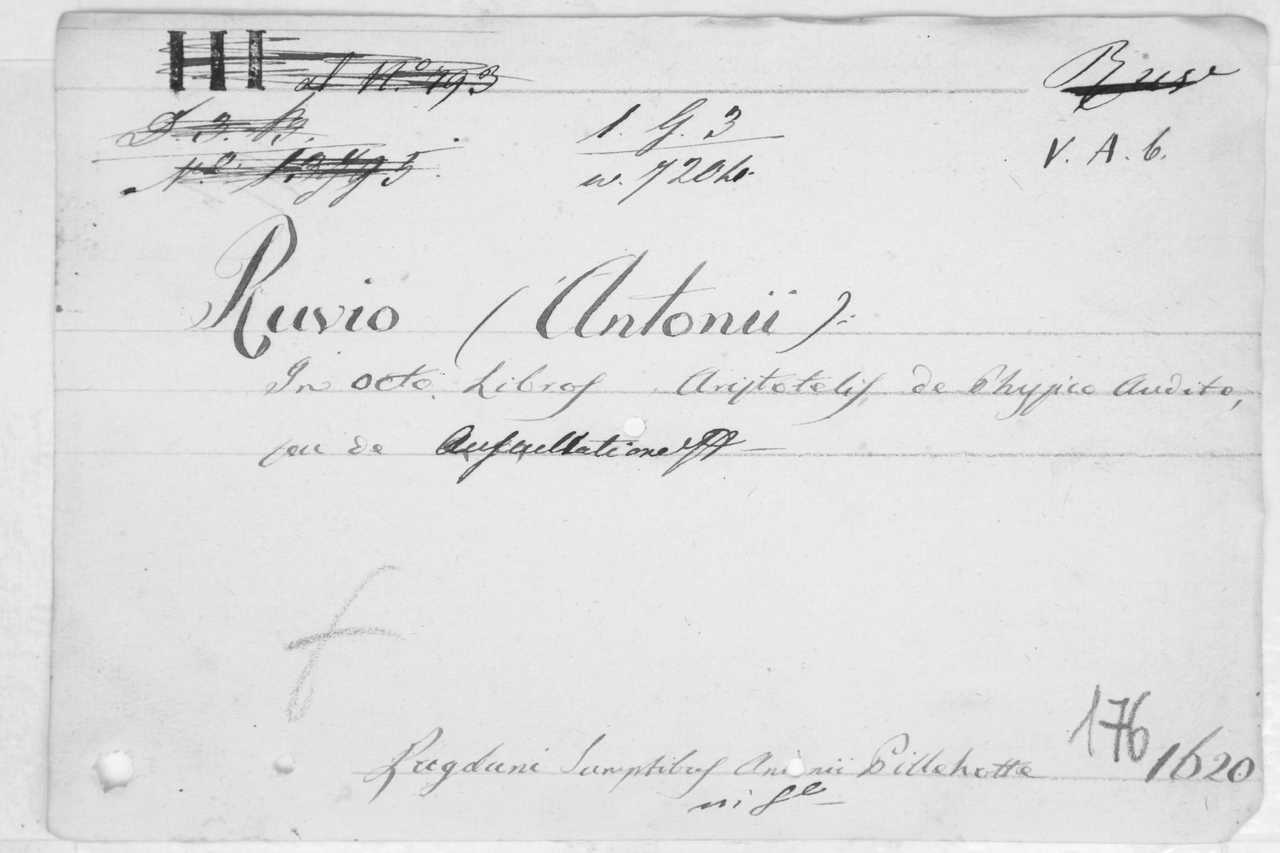 HI al N.º 793
D. 3. B.
1. G. 3
V. A. 6.
w. 7204.
Ruvio (Antonii).
In octo Libros Aristotelis, de Physico Audito,
seu de Auscultatione
176
Lugduni Sumptibus Antonii Pillehotte 1620